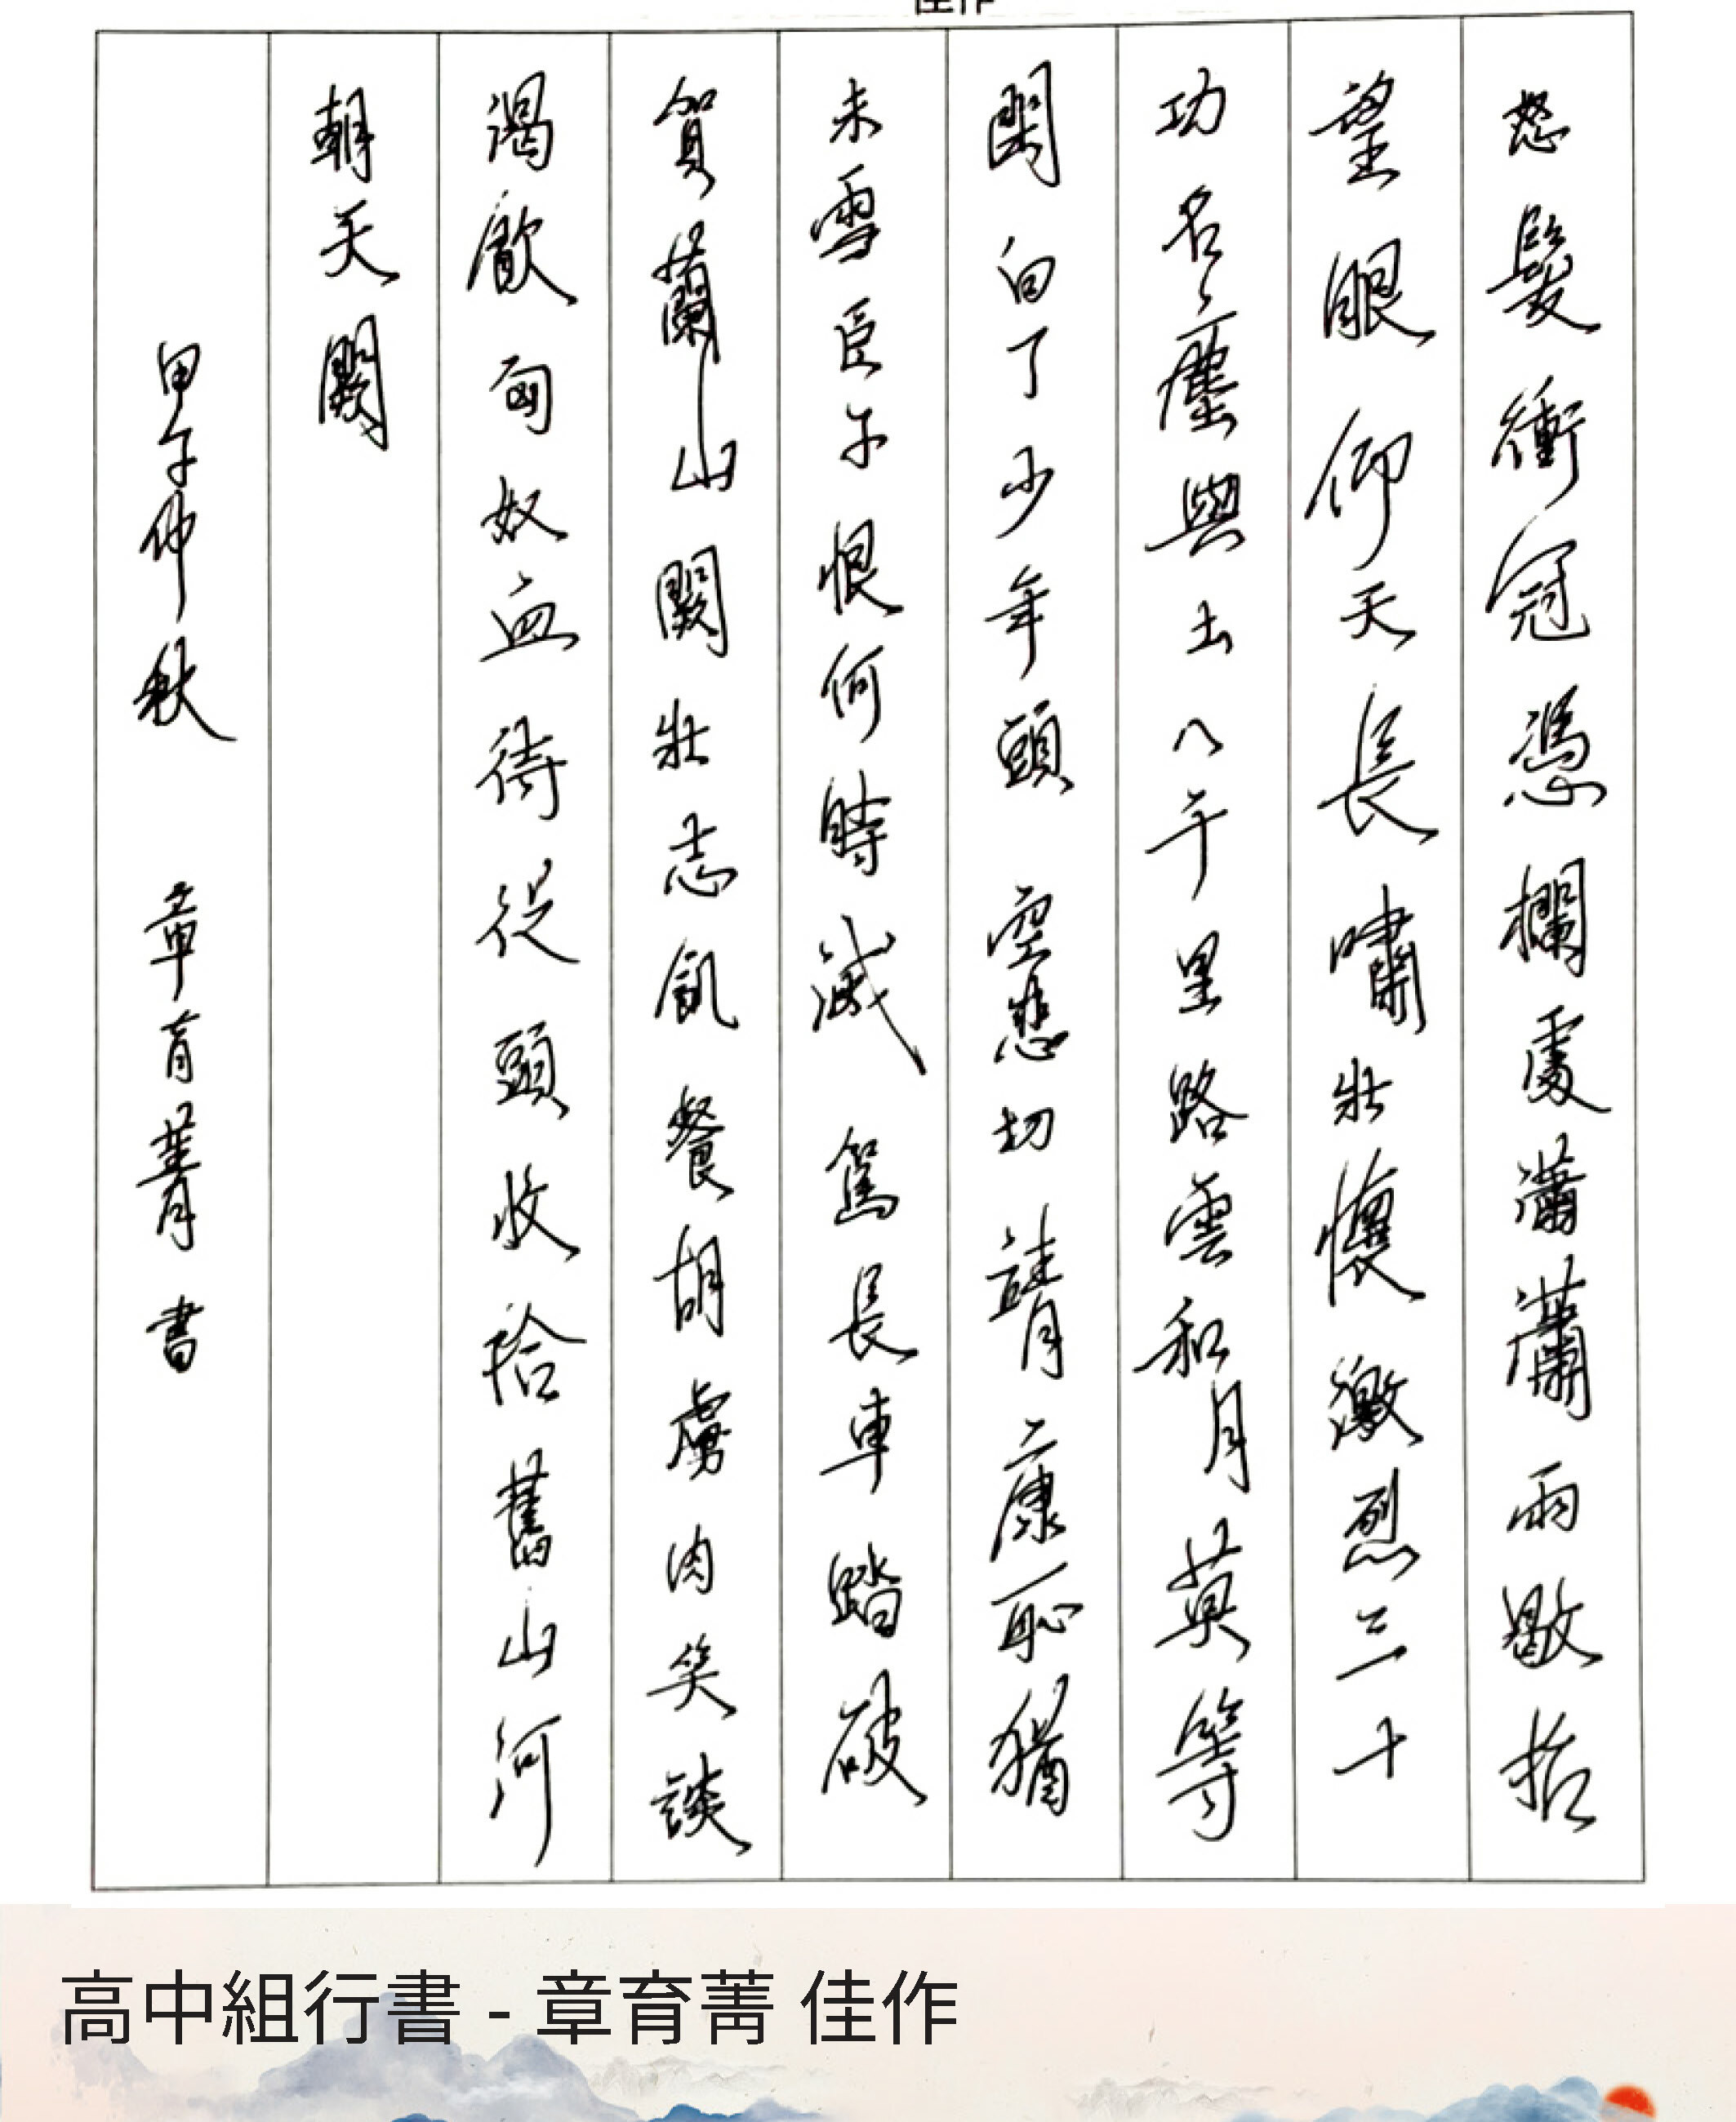 佳作
怒髮衝冠憑欄處瀟瀟雨歇抬
望眼仰天長嘯壯懷激烈三十
功名塵與土八千里路雲和月莫等
閑白了少年頭 空悲切 靖康恥猶
未雪臣子恨何時滅 駕長車踏破
賀蘭山闕壯志飢餐胡虜肉笑談
渴飲匈奴血待從頭收拾舊山河
朝天闕
甲午仲秋 章育菁書
高中組行書 - 章育菁 佳作